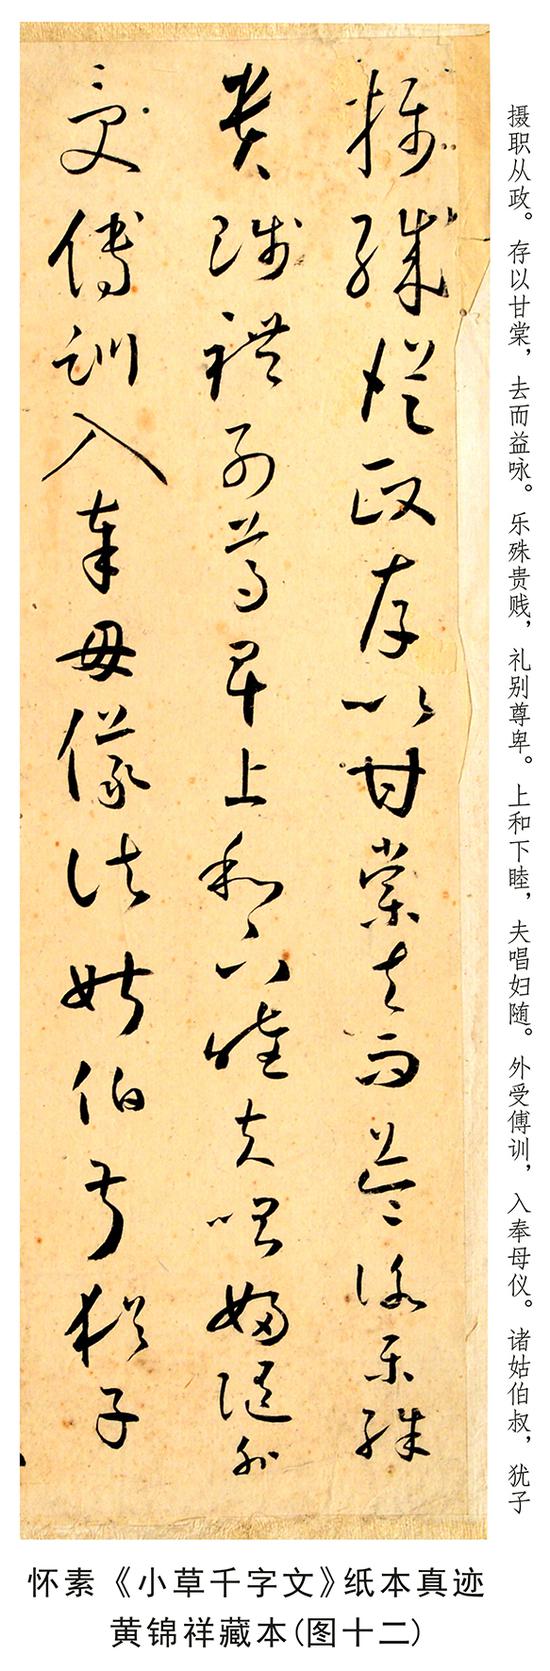 摄职从政。存以甘棠，去而益咏。乐殊贵贱，礼别尊卑。上和下睦，夫唱妇随。外受傅训，入奉母仪。诸姑伯叔，犹子
攝職從政存以甘棠去而益詠樂殊
貴賤禮別尊卑上和下睦夫唱婦隨外
受傅訓入奉母儀諸姑伯叔猶子
怀素《小草千字文》纸本真迹
黄锦祥藏本(图十二)